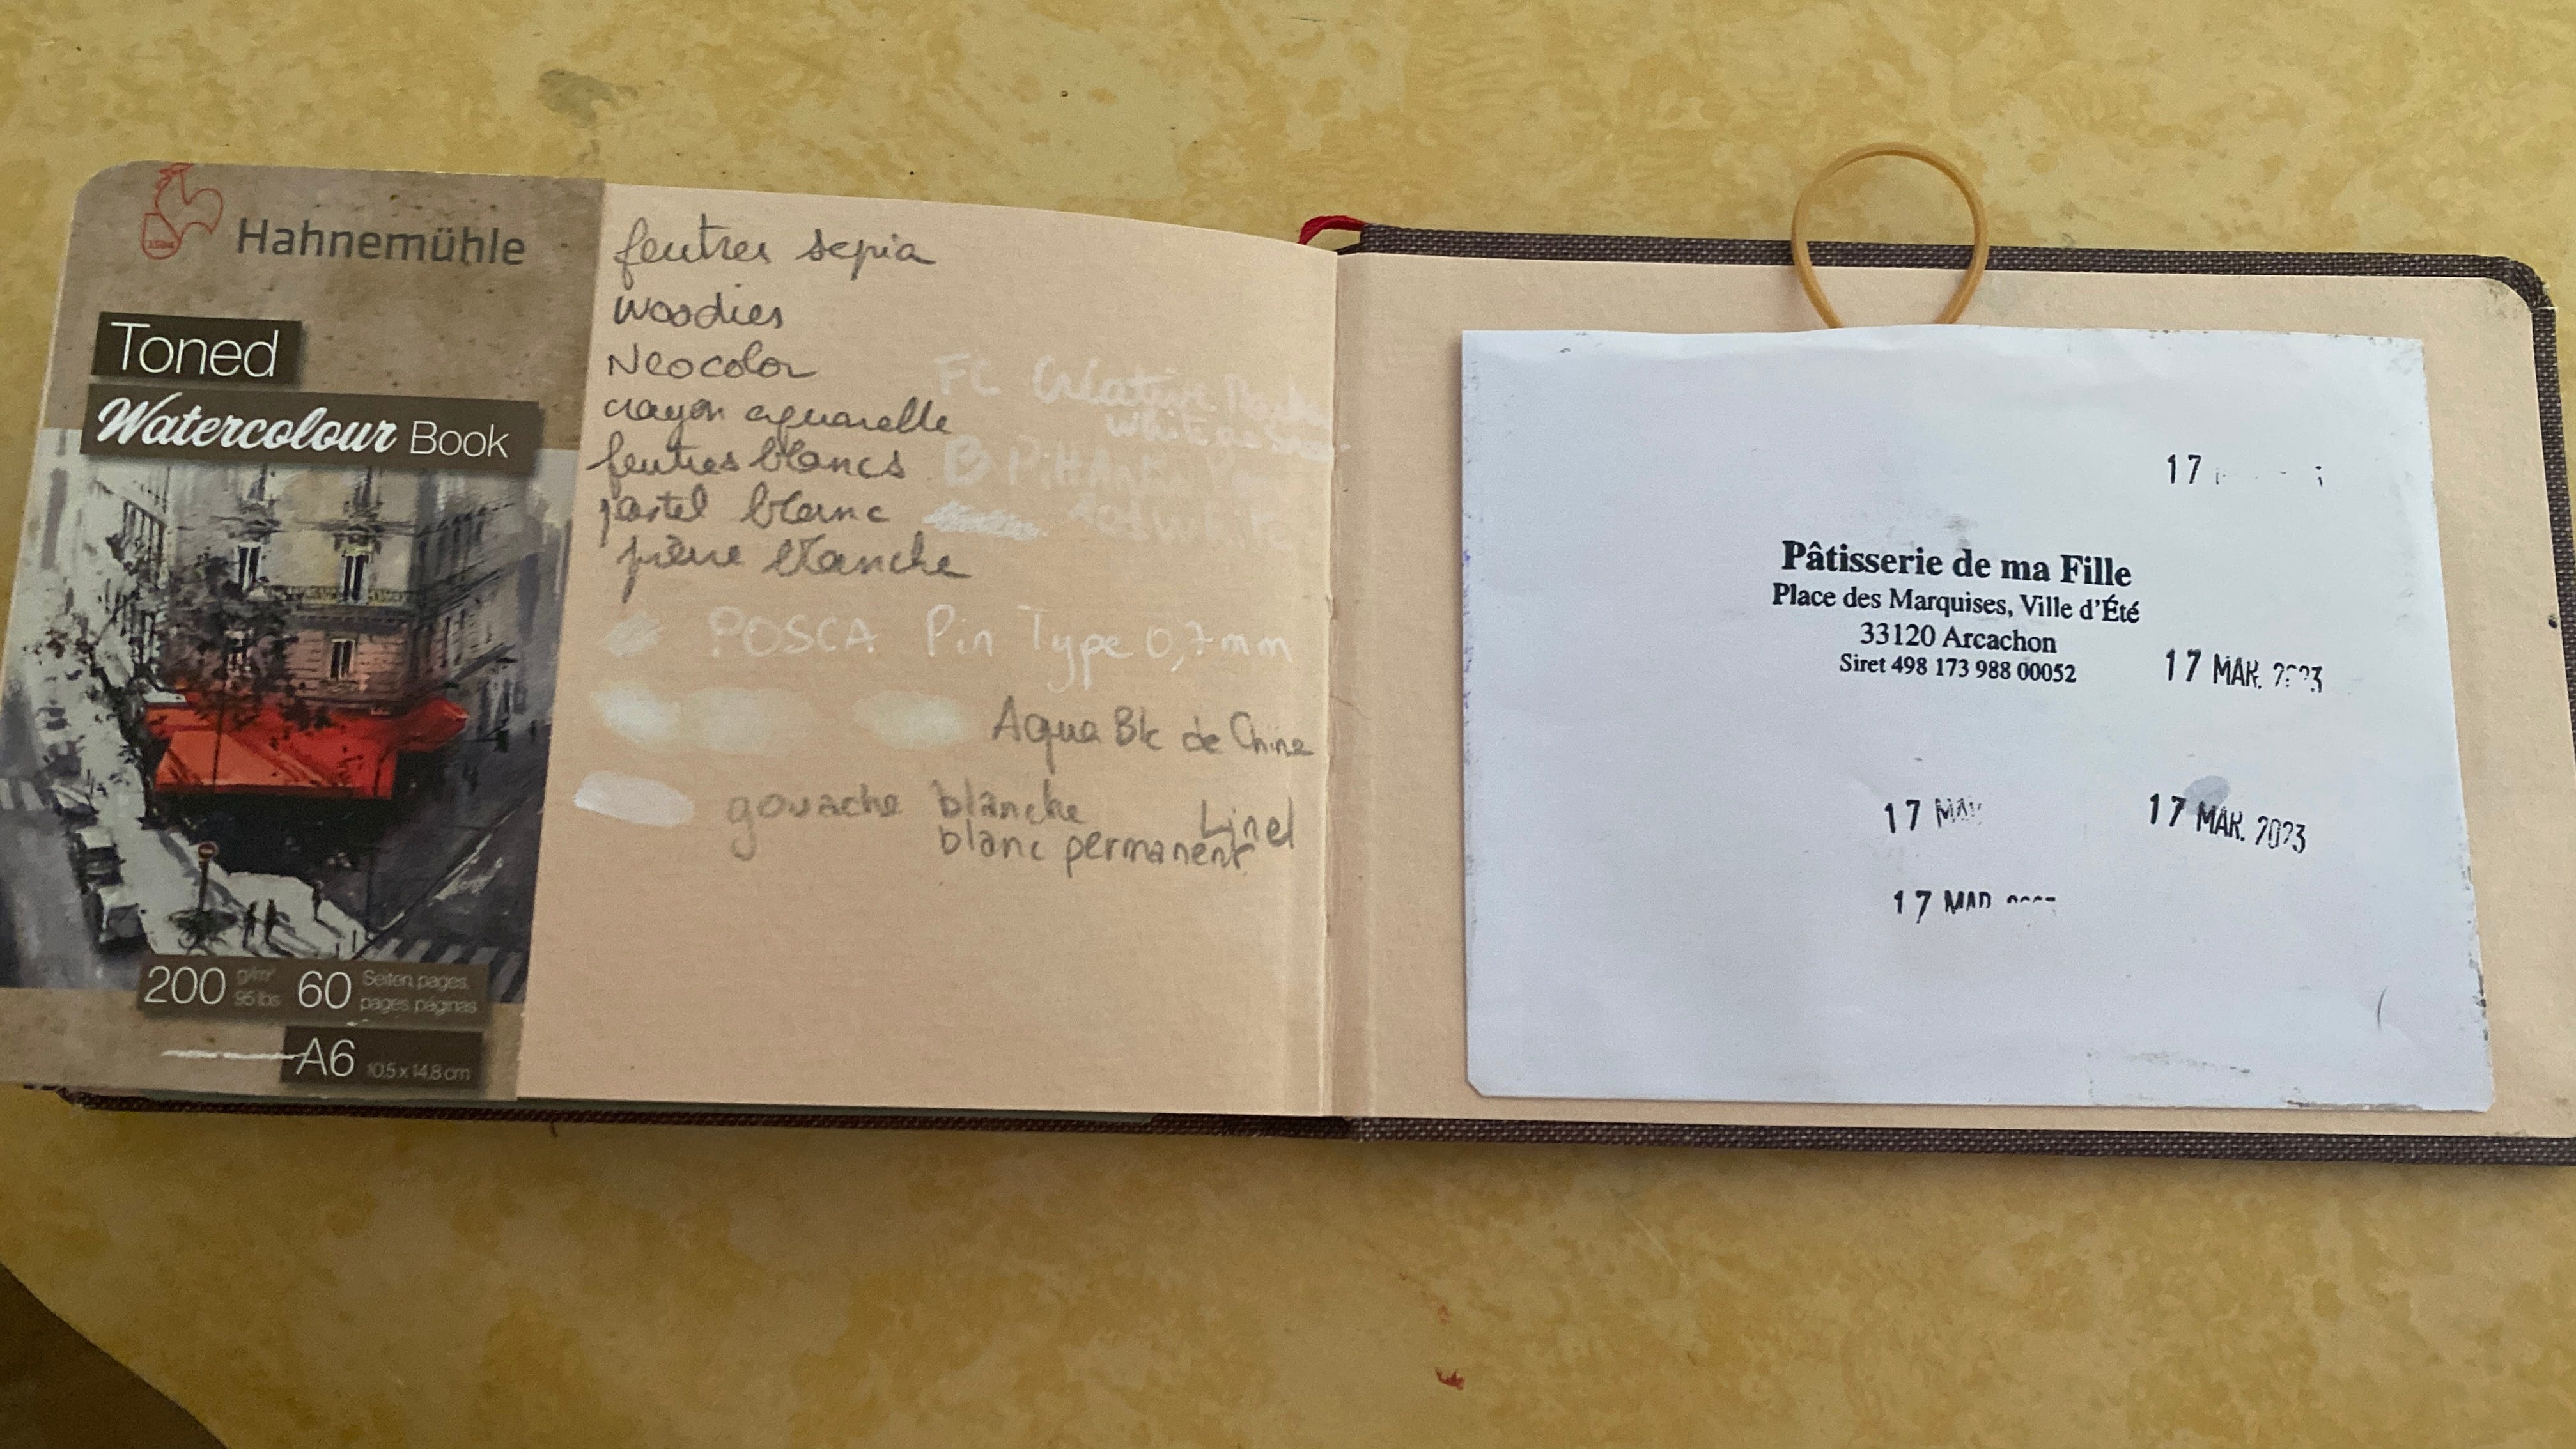 Hahnemühle
Toned
Watercolour Book
200 g/m² 95 lbs 60 Seiten, pages, pages, páginas
A6 10,5 x 14,8 cm
1584
feutres sepia
Woodies
Neocolor
crayon aquarelle
feutres blancs
pastel blanc
pierre blanche
FC Creative
White
B Pitt Artist
POSCA Pin Type 0,7mm
Aqua Blc de Chine
gouache blanche Linel
blanc permanent
17
Pâtisserie de ma Fille
Place des Marquises, Ville d'Été
33120 Arcachon
Siret 498 173 988 00052
17 MAR. 2023
17 MAR
17 MAR. 2023
17 MAR